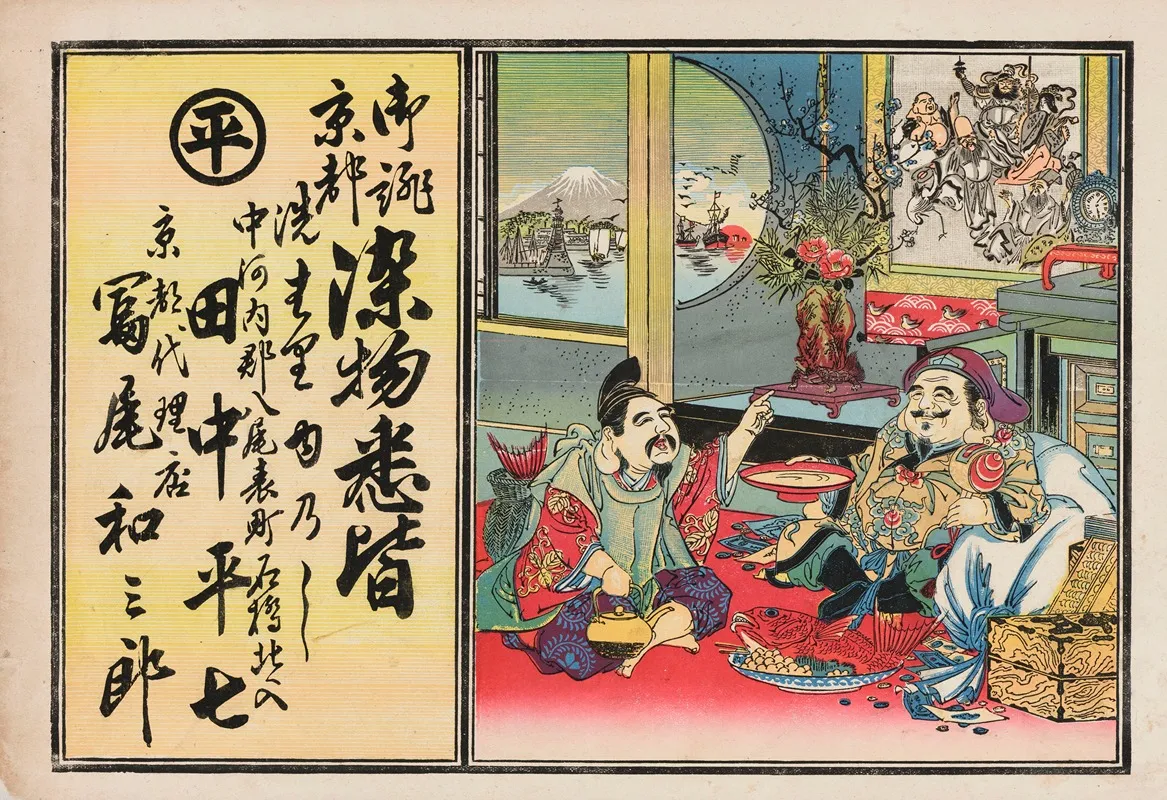 御誂
京都
染物悉皆
洗者里由乃し
中河内郡八尾表町石橋北入
平
田中平七
京都代理店
冨尾和三郎